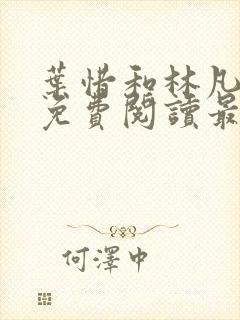 葉惜和林凡
免費閱讀最
何澤中